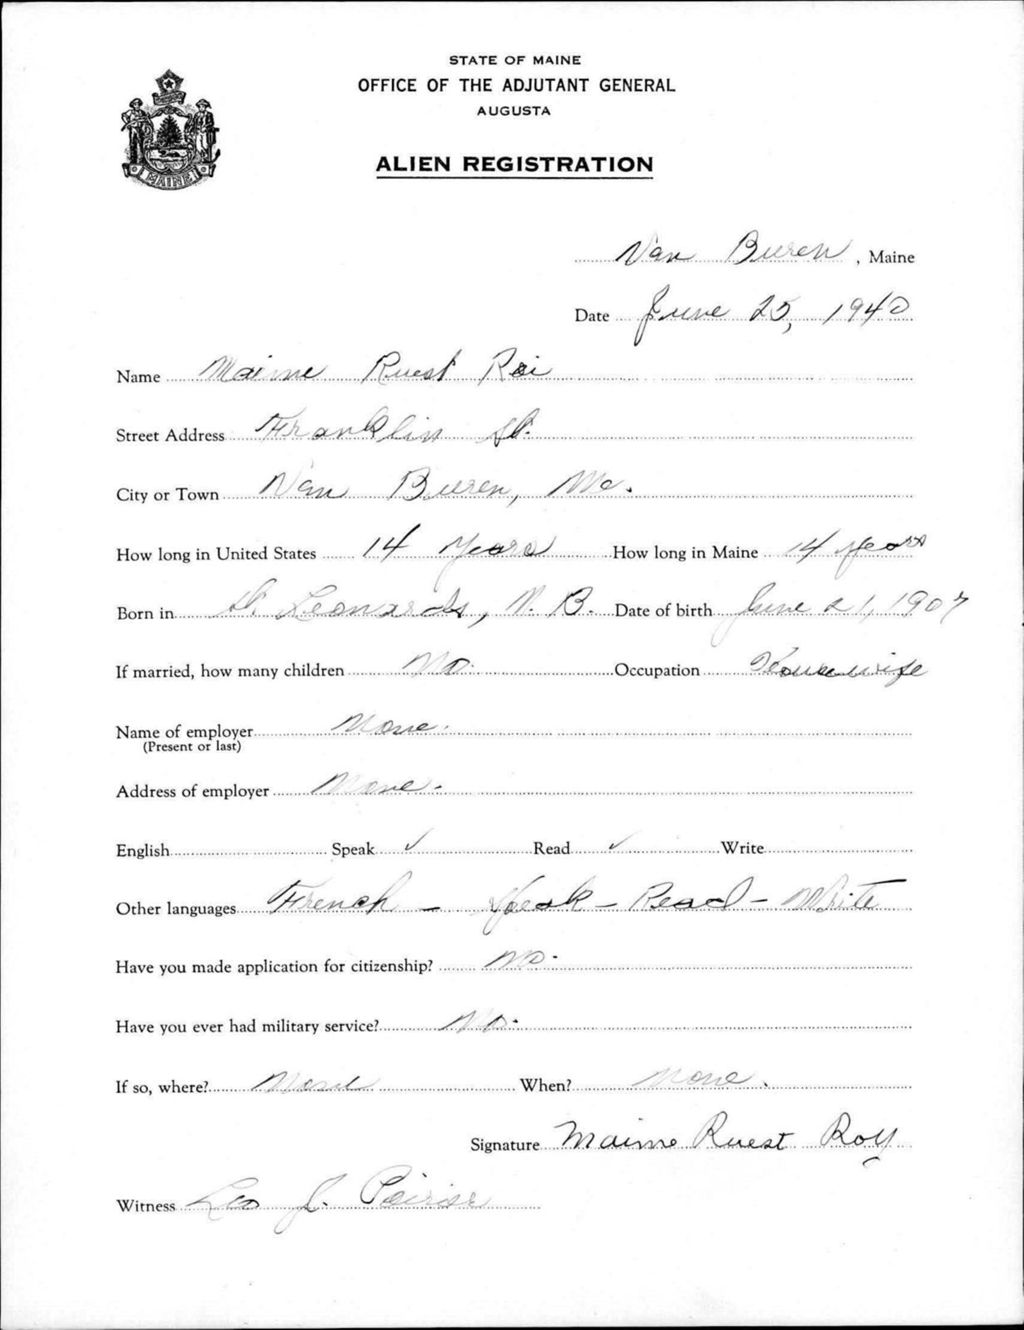 STATE OF MAINE
OFFICE OF THE ADJUTANT GENERAL
AUGUSTA
MAINE
ALIEN REGISTRATION
Van Buren, Maine
Date June 25, 1940
Name Maime Ruest Roi
Street Address Franklin St.
City or Town Van Buren, Me.
How long in United States 14 Years How long in Maine 14 years
Born in St. Leonards, N. B. Date of birth June 21, 1907
If married, how many children No. Occupation Housewife
Name of employer None.
(Present or last)
Address of employer None.
English Speak ✓ Read ✓ Write
Other languages French - Speak - Read - Write
Have you made application for citizenship? No.
Have you ever had military service? No.
If so, where? None When? None.
Signature Maime Ruest Roy
Witness Leo J. Poirier